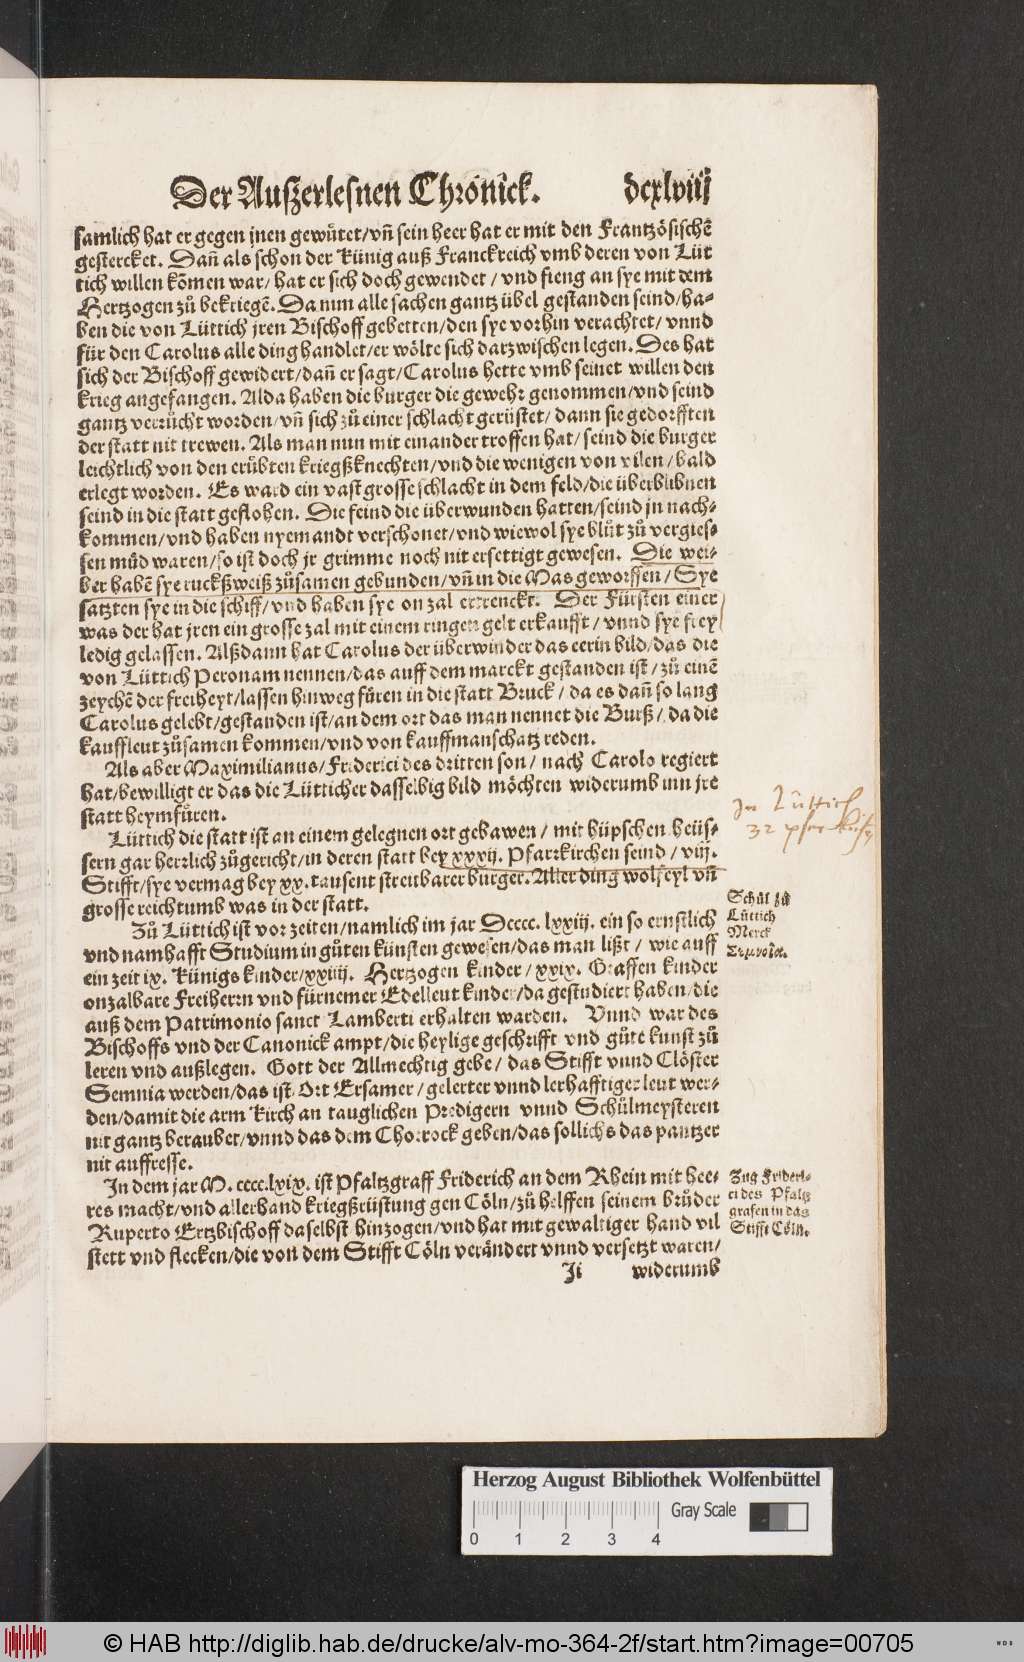 Der Außerlesnen Chronick. dcxlviij
samlich hat er gegen jnen gewuͤtet/vñ sein heer hat er mit den Frantzoͤsischẽ
gestercket. Dañ als schon der Künig auß Franckreich vmb deren von Lüt
tich willen kõmen war/ hat er sich doch gewendet / vnd fieng an sye mit dem
Hertzogen zuͦ bekriegẽ. Da nun alle sachen gantz übel gestanden seind/ha-
ben die von Lüttich jren Bischoff gebetten/den sye vorhin verachtet/ vnnd
für den Carolus alle ding handlet/er woͤlte sich darzwischen legen. Des hat
sich der Bischoff gewidert/dañ er sagt/Carolus hette vmb seinet willen den
krieg angefangen. Alda haben die burger die gewehr genommen/vnd seind
gantz verruͤcht worden/vñ sich zuͦ einer schlacht gerüstet/ dann sie gedorfften
der statt nit trewen. Als man nun mit einander troffen hat/ seind die burger
leichtlich von den eruͤbten kriegßknechten/vnd die wenigen von vilen/bald
erlegt worden. Es ward ein vast grosse schlacht in dem feld/die überblibnen
seind in die statt geflohen. Die feind die überwunden hatten/seind jn nach-
kommen/vnd haben nyemandt verschonet/vnd wiewol sye bluͦt zuͦ vergies-
sen muͤd waren/so ist doch jr grimme noch nit ersettigt gewesen. Die wei-
ber habẽ sye ruckßweiß zuͦsamen gebunden/vñ in die Mas geworffen/Sye
satzten sye in die schiff/vnd haben sye on zal ertrenckt. Der Fürsten einer
was der hat jren ein grosse zal mit einem ringen gelt erkaufft/ vnnd sye frey
ledig gelassen. Alßdann hat Carolus der überwinder das eerin bild/das die
von Lüttich Peronam nennen/das auff dem marckt gestanden ist/zuͦ einẽ
zeychẽ der freiheyt/lassen hinweg fuͤren in die statt Bruck/ da es dañ so lang
Carolus gelebt/gestanden ist/an dem ort das man nennet die Burß/ da die
kauffleut zuͦsamen kommen/vnd von kauffmanschatz reden.
Als aber Maximilianus/Friderici des dritten son/ nach Carolo regiert
hat/bewilligt er das die Lütticher dasselbig bild moͤchten widerumb inn jre
statt heymfuͤren.
Lüttich die statt ist an einem gelegnen ort gebawen/ mit hüpschen heüs-
sern gar herrlich zuͦgericht/in deren statt bey xxxij. Pfarrkirchen seind/ viij.
Stifft/sye vermag bey xx. tausent streitbarer burger. Aller ding wolfeyl vñ
grosse reichtumb was in der statt.
Zuͦ Lüttich ist vor zeiten/namlich im jar Dcccc. lxxiij. ein so ernstlich
vnd namhafft Studium in guͦten künsten gewesen/das man lißt/ wie auff
ein zeit ix. Künigs kinder/xxiiij. Hertzogen kinder/ xxix. Graffen kinder
onzalbare Freiherrn vnd fürnemer Edelleut kinder/da gestudiert haben/die
auß dem Patrimonio sanct Lamberti erhalten warden. Vnnd war des
Bischoffs vnd der Canonick ampt/die heylige geschrifft vnd guͦte kunst zuͦ
leren vnd außlegen. Gott der Allmechtig gebe/ das Stifft vnnd Cloͤster
Semnia werden/das ist Ort Ersamer/ gelerter vnnd lerhafftiger leut wer-
den/damit die arm Kirch an tauglichen Predigern vnnd Schuͦlmeysteren
nit gantz beraubet/vnnd das dem Chorrock geben/das sollichs das pantzer
nit auffresse.
In dem jar M. cccc.lxix. ist Pfaltzgraff Friderich an dem Rhein mit hee-
res macht/vnd allerhand kriegßrüstung gen Coͤln/zuͦ helffen seinem bruͦder
Ruperto Ertzbischoff daselbst hinzogen/vnd hat mit gewaltiger hand vil
stett vnd flecken/die von dem Stifft Coͤln veraͤndert vnnd versetzt waren/
Ji widerumb
In Lüttich
32 pfarkirche
Schuͦl zuͦ
Lüttich
Merck
Σεμνεῖα.
Zug Frideri-
ci des Pfaltz
grafen in das
Stifft Coͤln.
Herzog August Bibliothek Wolfenbüttel
Gray Scale
0 1 2 3 4
© HAB http://diglib.hab.de/drucke/alv-mo-364-2f/start.htm?image=00705